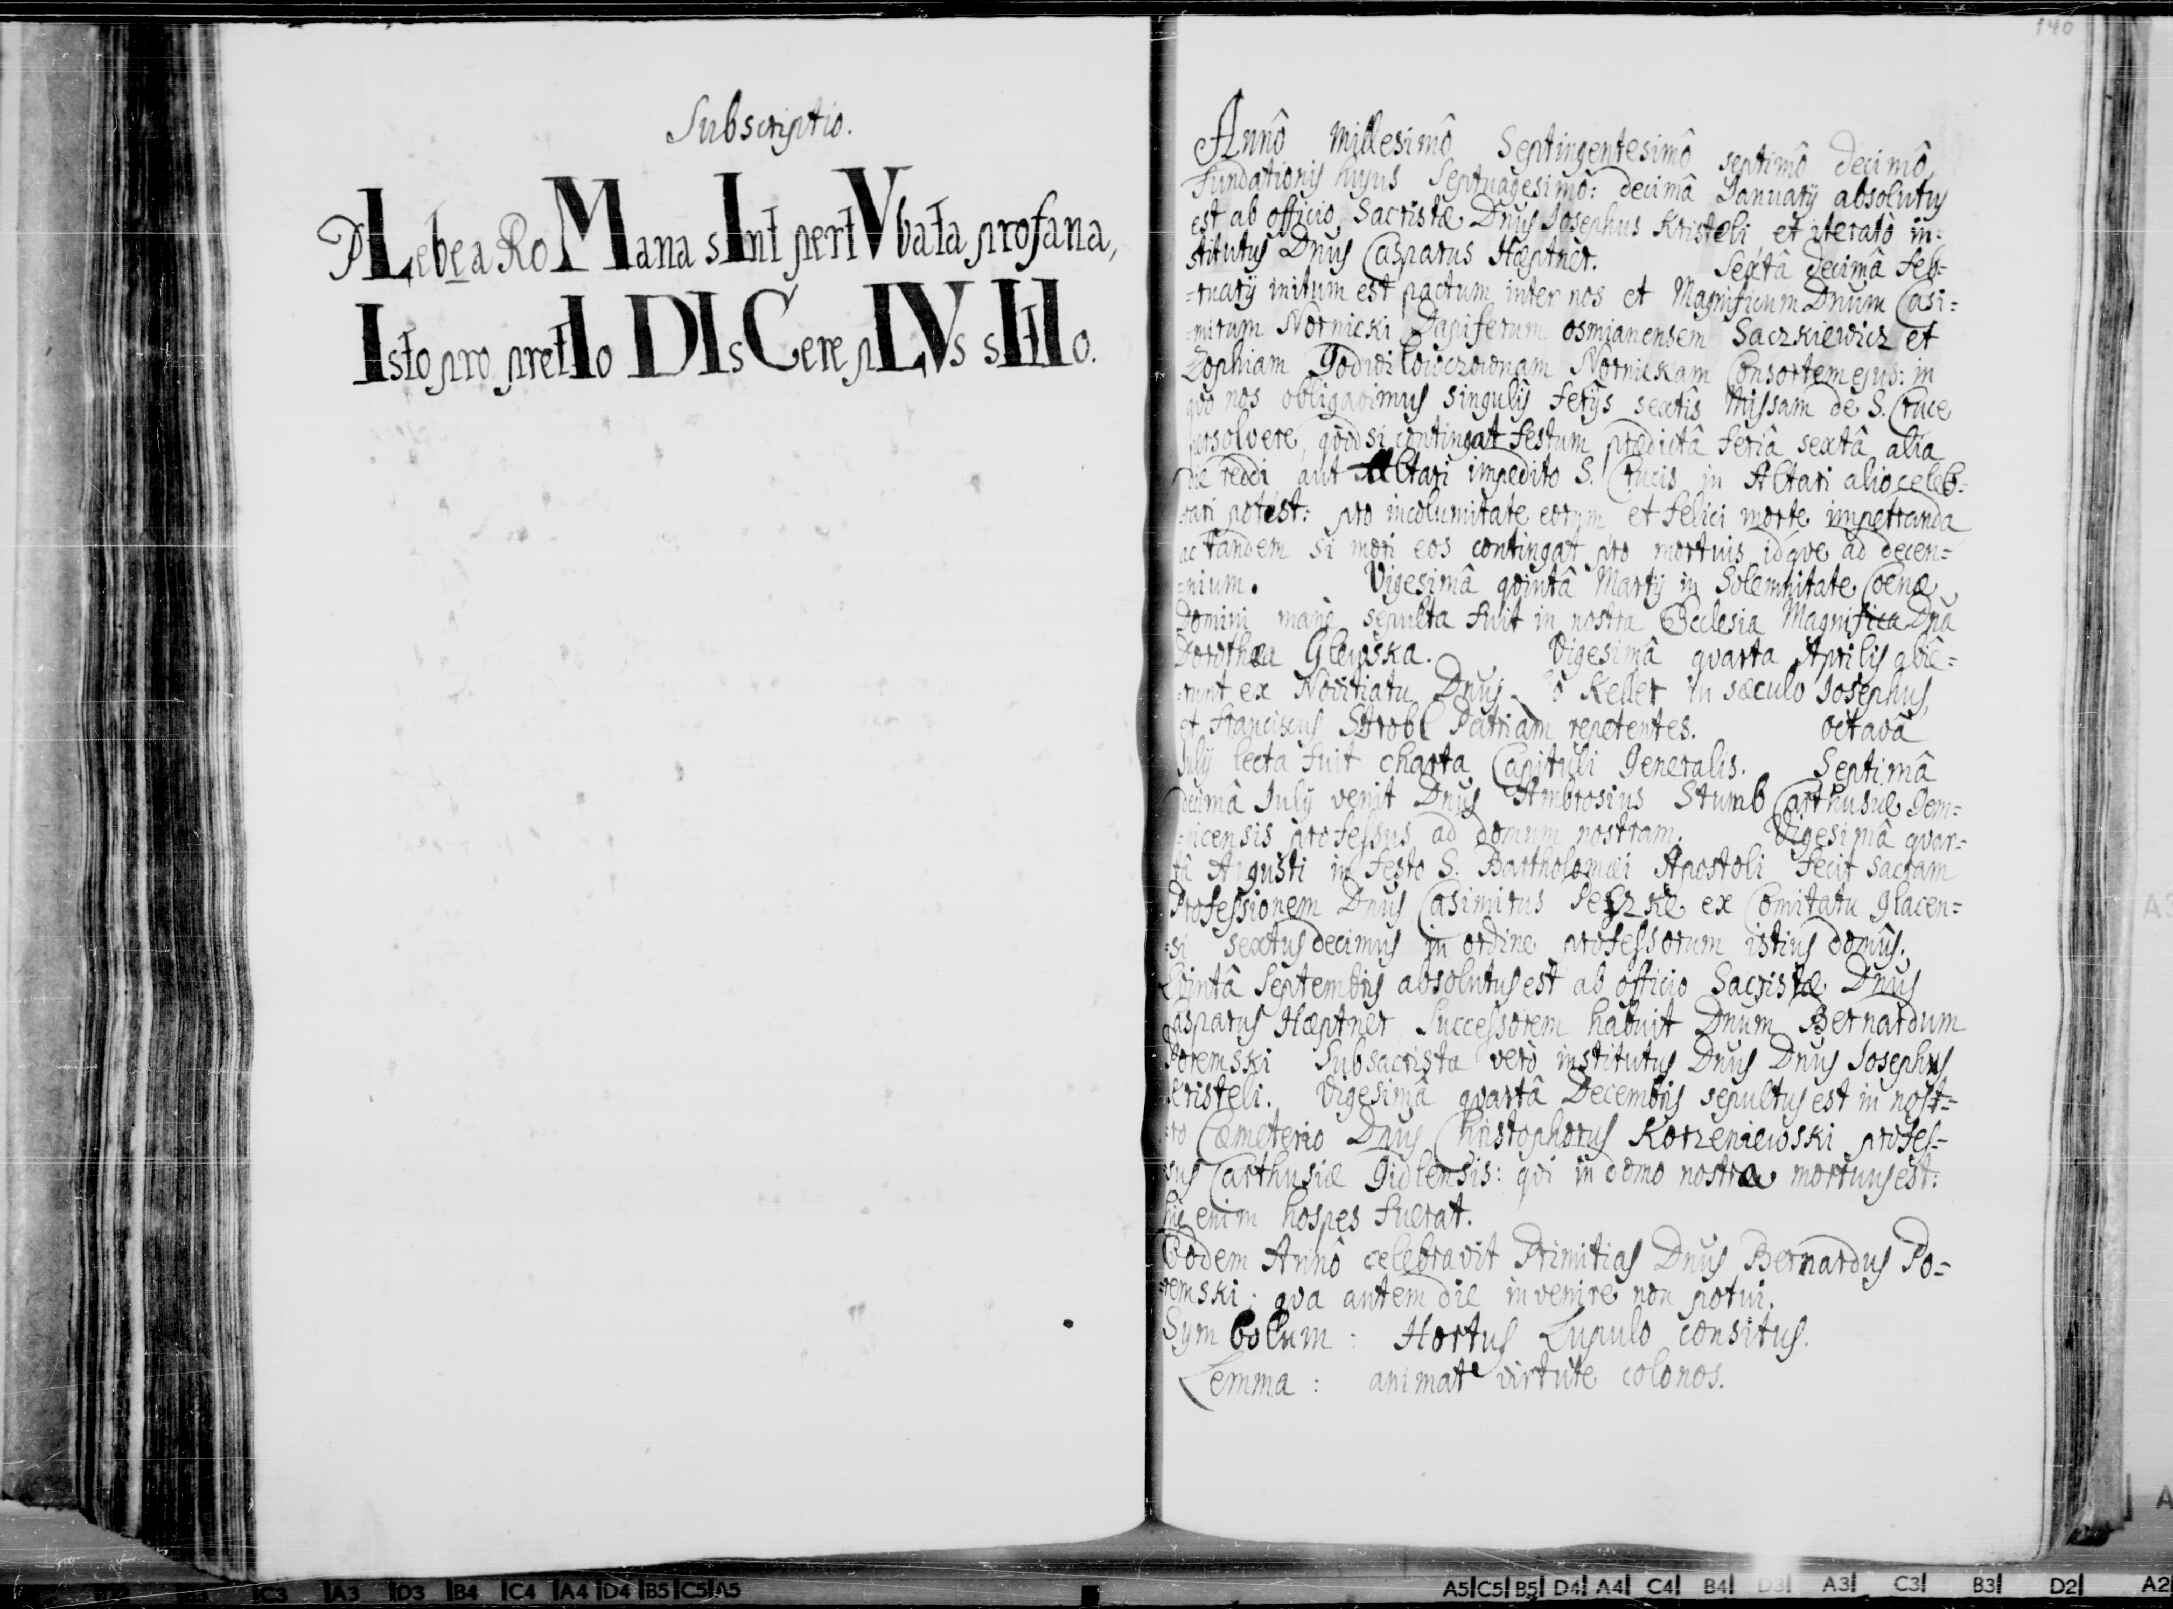 Subscriptio.
PLebea RoMana sInt pertVbata profana,
Isto pro pretIo DIsCere pLVs sItIo.
140
Annô Millesimô Septingentesimô septimô decimô,
Fundationis hujus Septuagesimô: decimâ Ianuarij absolutus
est ab officio Sacristæ Dnus Iosephus Kristeli, et iteratò in-
stitutus Dnus Casparus Hæptner. Sextâ decimâ Feb=
=ruarij initum est pactum inter nos et Magnificum Dnum Casi=
=mirum Nornicki Dapiferum osmianensem Saczkiewicz et
Zophiam Nornickam Consortem ejus: in
quo nos obligavimus singulis ferijs sextis Missam de S. Cruce
persolvere, quòd si contingat festum prædictâ feriâ sextâ alia
die reddi aut Altari impedito S. Crucis in Altari alio celeb=
=rari potest: pro incolumitate eorum et felici morte impetranda
ac tandem si mori eos contingat pro mortuis idque ad decen=
=nium. Vigesimâ quintâ Martij in Solemnitate Cœnæ
Domini manè sepulta fuit in nostra Ecclesia Magnifica Dna
Dorothea Vigesimâ quarta Aprilis abie=
=runt ex Novitiatu Dnus Keller in sæculo Iosephus,
et Franciscus Strobl Patriam repetentes. octavâ
Iulij lecta fuit charta Capituli Generalis. Septimâ
decimâ Iulij venit Dnus Ambrosius Stumb Carthusiæ Gem=
=nicensis professus ad domum nostram. Vigesimâ quar=
tâ Augusti in festo S. Bartholomæi Apostoli fecit sacram
Professionem Dnus Casimirus Peszke ex Comitatu Glacen=
=si sextus decimus in ordine professorum istius domûs.
Quintâ Septembris absolutus est ab officio Sacristæ Dnus
Casparus Hæptner, Successorem habuit Dnum Bernardum
Poremski Subsacrista verò institutus Dnus Dnus Iosephus
Kristeli. Vigesimâ quartâ Decembris sepultus est in nost=
=ro Cæmeterio Dnus Christophorus Korzeniewski profes=
sus Carthusiæ Gidlensis: qui in domo nostra mortuus est:
hic enim hospes fuerat.
Eodem Annô celebravit Primitias Dnus Bernardus Po=
remski; qva autem die invenire non potui.
Symbolum: Hortus Lupulo consitus.
Lemma: animat virtute colonos.
C3 A3 D3 B4 C4 A4 D4 B5 C5 A5
A5 C5 B5 D4 A4 C4 B4 D3 A3 C3 B3 D2 A2